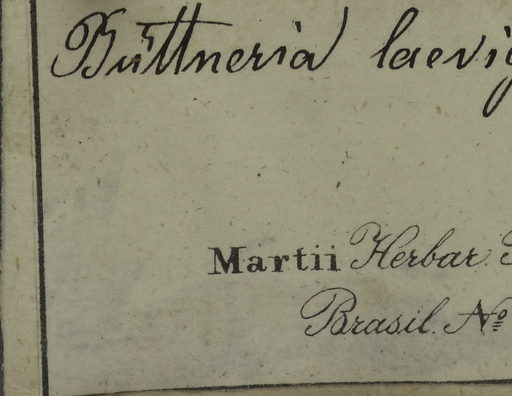 Büttneria
Martii Herbar.
Brasil. No